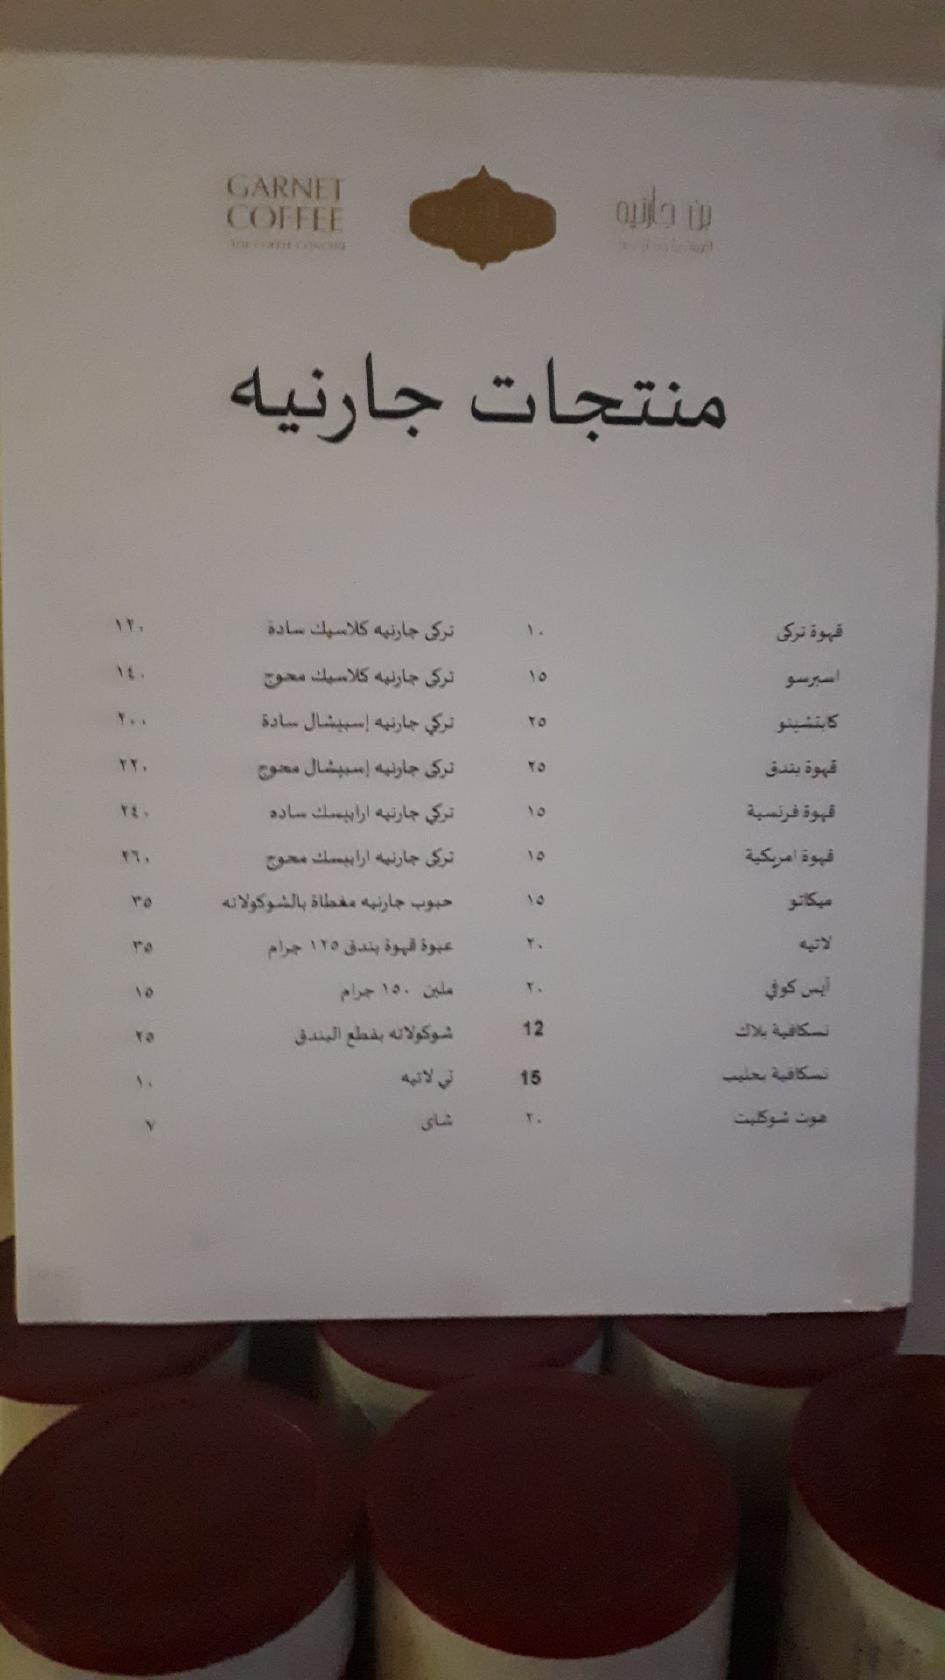 GARNET
COFFEE
THE COFFEE CONCEPT
بن جارنيه
منتجات جارنيه
قهوة تركى ١٠ تركى جارنيه كلاسيك سادة ١٢٠
اسبرسو ١٥ تركى جارنيه كلاسيك محوج ١٤٠
كابتشينو ٢٥ تركي جارنيه إسبيشال سادة ٢٠٠
قهوة بندق ٢٥ تركى جارنيه إسبيشال محوج ٢٢٠
قهوة فرنسية ١٥ تركي جارنيه ارابيسك ساده ٢٤٠
قهوة امريكية ١٥ تركى جارنيه ارابيسك محوج ٢٦٠
ميكاتو ١٥ حبوب جارنيه مغطاة بالشوكولاته ٣٥
لاتيه ٢٠ عبوة قهوة بندق ١٢٥ جرام ٣٥
آيس كوفي ٢٠ ملبن ١٥٠ جرام ١٥
نسكافية بلاك 12 شوكولاته بقطع البندق ٢٥
نسكافية بحليب 15 تي لاتيه ١٠
هوت شوكليت ٢٠ شاى ٧